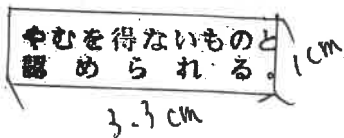 やむを得ないものと
認められる。
1cm
3.3cm